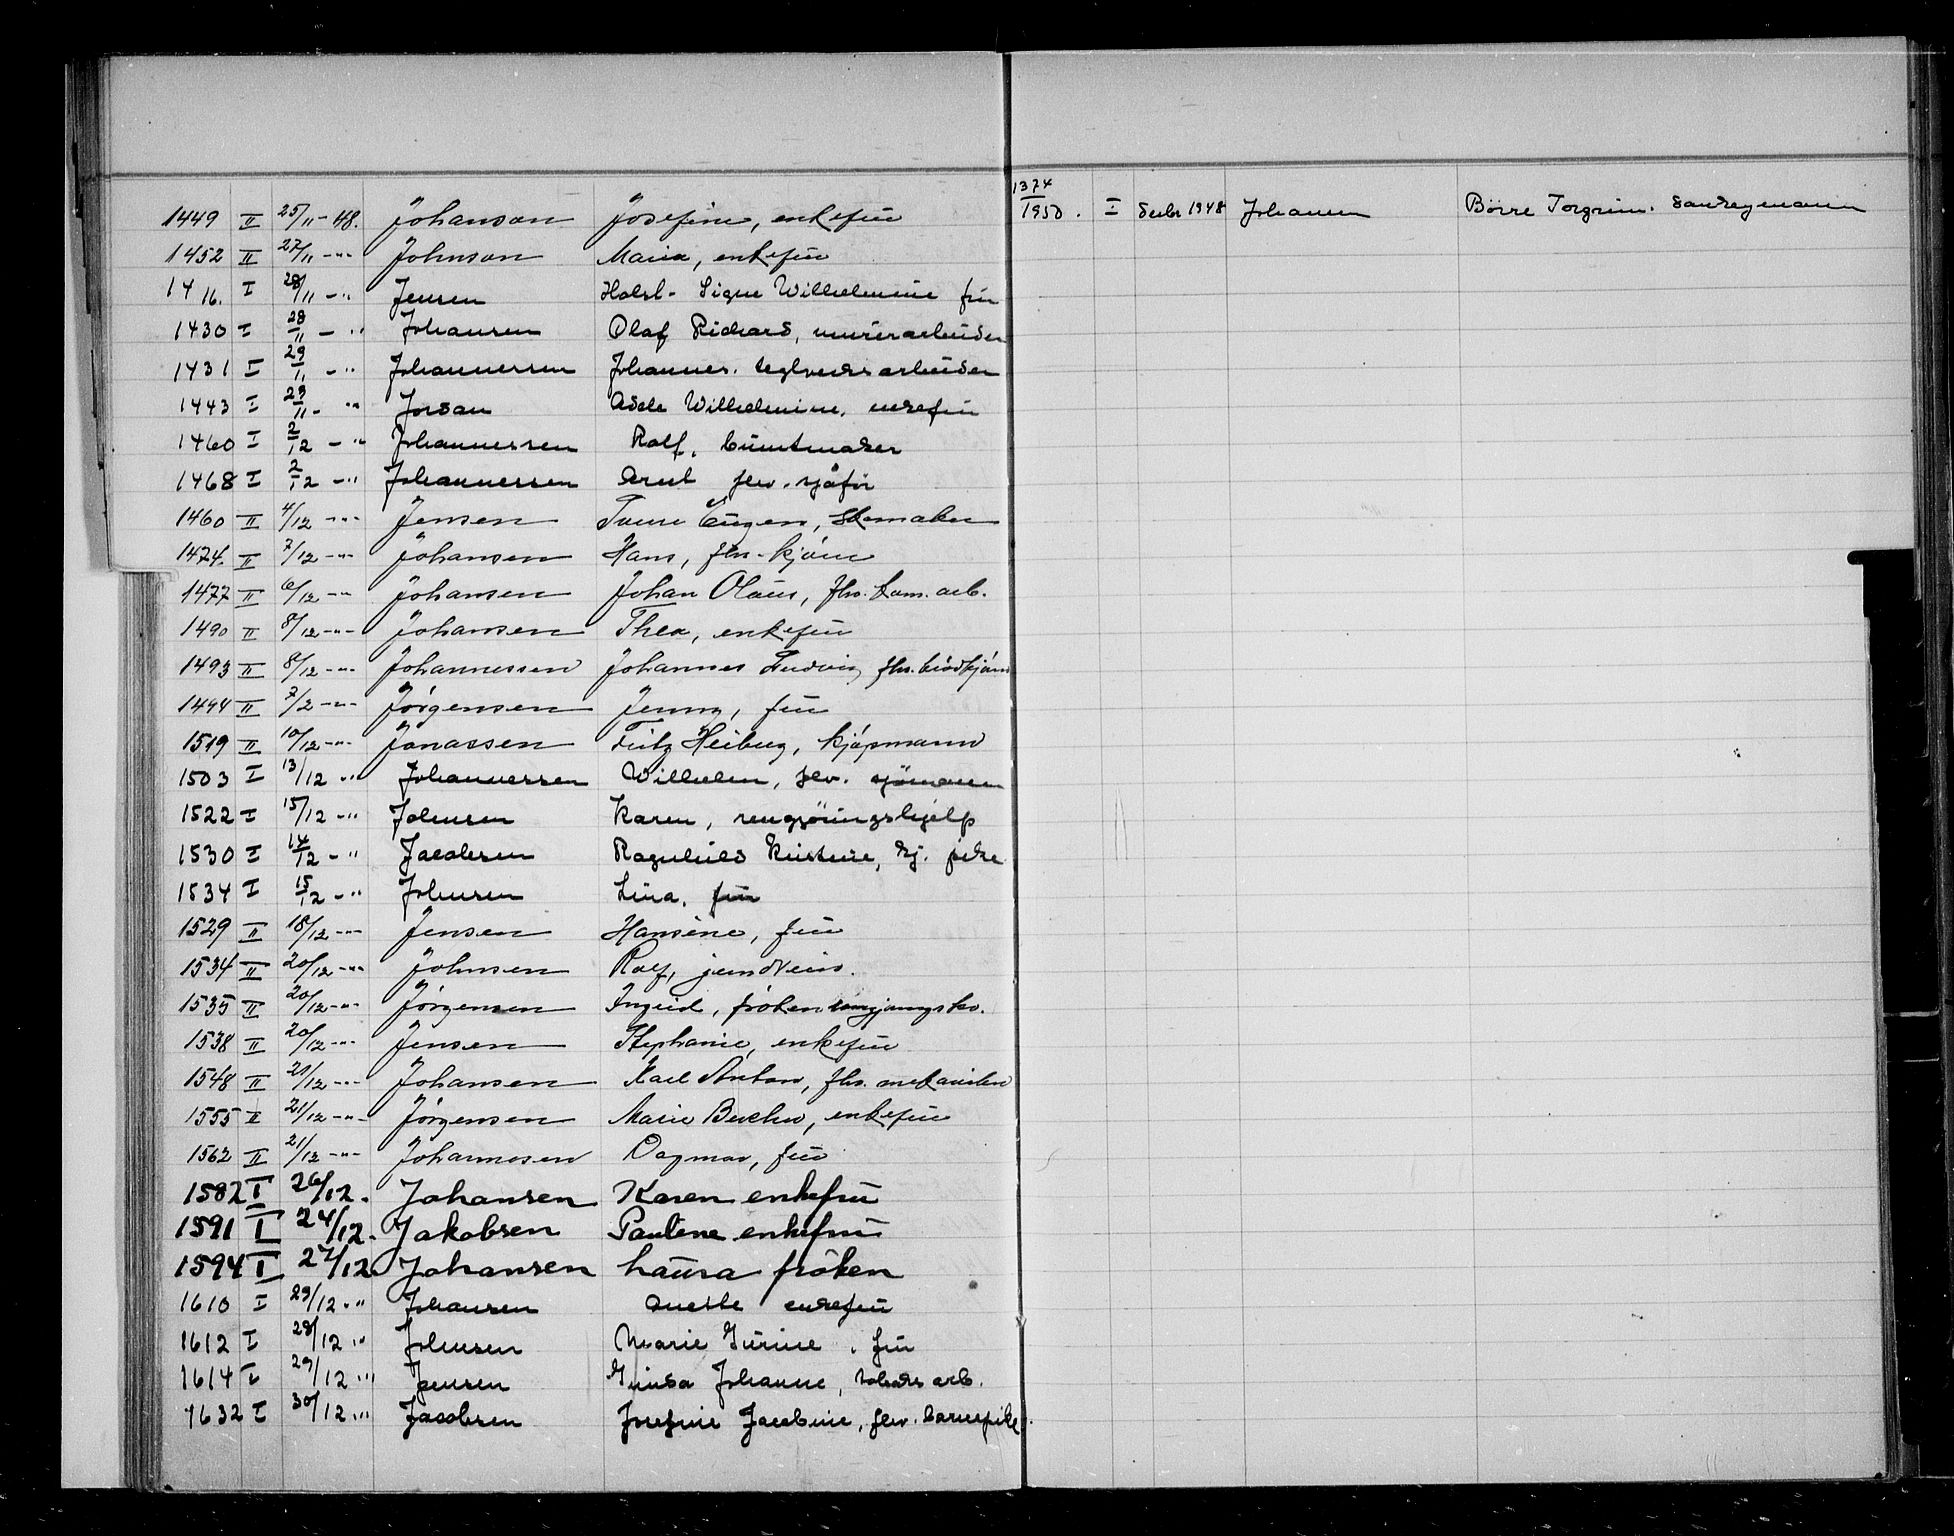 1449 II 25/11-48. Johanson Josefine, enkefrū
1452 II 27/11 -"- Johnson Maria, enkefrū
1416. I 28/11 -" Jensen Holst- Signe Wilhelmine frū
1430 I 28/11 -" Johansen Olaf Richard, mūrerarbeider
1431 I 29/11 -" Johannessen Johannes. teglverksarbeider
1443 I 29/11 -" Jordan Adele Wilhelmine. enkefrū
1460 I 2/12 -" Johannessen Rolf, būntmaker
1468 I 2/12 -" Johannessen Arnt fhv. sjåför
1460 II 4/12 -"- Jensen Eūgen, skomaker
1474. II 7/12 -"- Johansen Hans, fhv.
1477 II 6/12 -"- Johansen Johan Olaūs, fhv. kom. arb.
1490 II 8/12 -"- Johansen Thea, enkefrū
1493 II 8/12 -"- Johannessen Johannes Ludvig fhv. brödkjörer
1494 II 7/2 -"- Jörgensen Jenny, frū
1519 II 10/12 -"- Jonassen Fritz Heiberg, kjöpmann
1503 I 13/12 -" Johannessen Wilhelm, fhv. sjömann
1522 I 15/12 -" Johnsen Karen, rengjöringshjelp
1530 I 14/12 -" Jacobsen Ragnhild Kristine, kj. pike
1534 I 15/12 -" Johnsen Lina. frū
1529 II 18/12 -"- Jensen Hansine, frū
1534 II 20/12 -"- Johnsen Rolf,
1535 II 20/12 -"- Jörgensen Ingrid, fröken
1538 II 20/12 -"- Jensen Stephanie, enkefrū
1548 II 21/12 -"- Johansen Karl Anton, fhv. mekaniker
1555 II 21/12 -"- Jörgensen Marie, enkefrū
1562 II 21/12 -"- Johannesen Dagmar, frū
1582 I 26/12. Johansen Karen enkefrū
1591 I 24/12. Jakobsen Paulene enkefrū
1594 I 27/12 Johansen Laūra fröken
1610 I 29/12 -" Johansen Anette enkefrū
1612 I 28/12 " Johnsen Marie Gūrine, frū
1614 I 29/12 -" Jensen Johanne, arb.
1632 I 30/12 -" Jacobsen Josefine Jacobine, fhv. barnepike.
1374/1950. I Desbr 1948 Johansen Börre Torgrim.